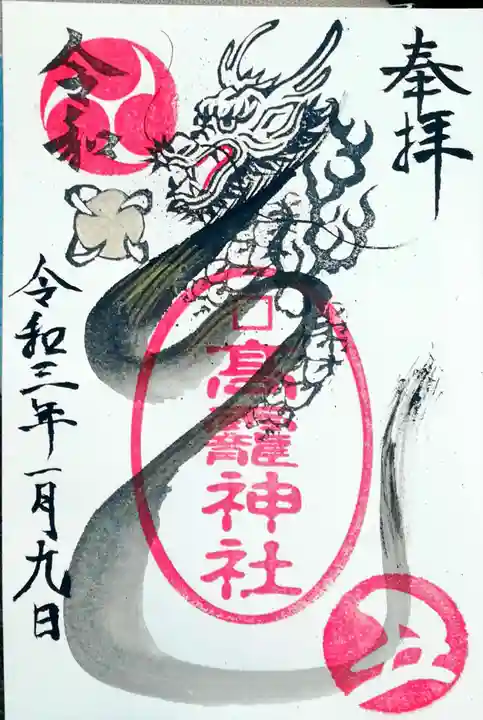 奉拝
高龗神社
丑
令和
令和三年一月九日